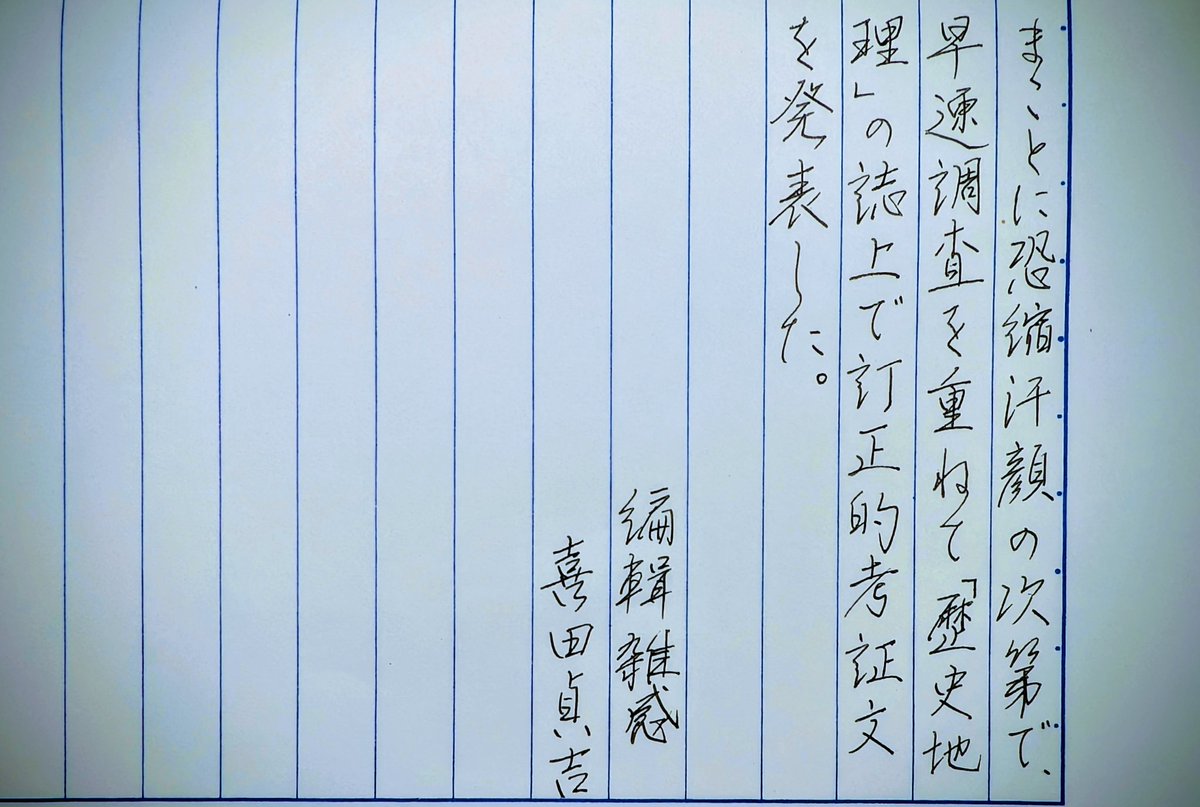 まことに恐縮汗顔の次第で、
早速調査を重ねて「歴史地
理」の誌上で訂正的考証文
を発表した。
編輯雑感
喜田貞吉